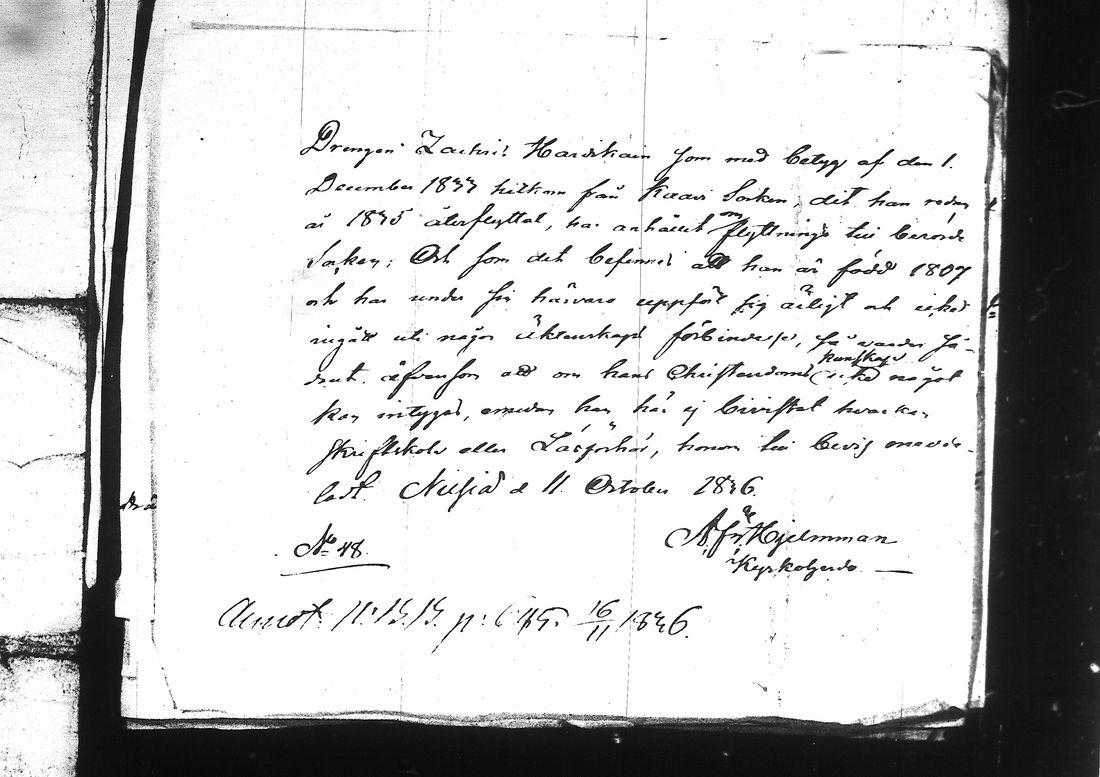 Drengen Zachris Harsikain som med betyg af den 1.
December 1833 hitkom från Kaavi Socken, det han redan
år 1835 återflyttat, har anhållit om flyttnings till berörde
Socken; Och som det befinnes att han är född 1807
och har under sin härvaro uppfört sig ärligt och icke
ingått uti någon äktenskaps förbindelse, så varder så-
dant, äfvensom att om hans Christendoms kunskap icke något
kan intygas, emedan han här ej bivistat hvarken
Skriftskola eller Läsförhör, honom till bevis medde-
ladt. Nilsiä d 11. October 1836.
Hjelmman
Kyrkoherde
No 48.
Annot. p: 16/11 1836.